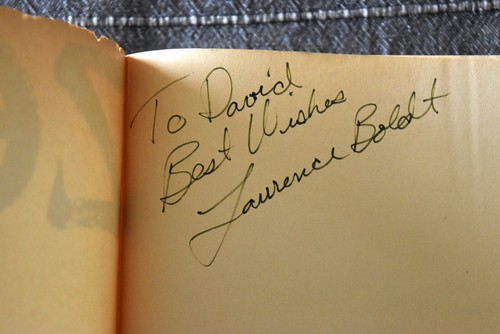 To David
Best Wishes
Laurence Boldt